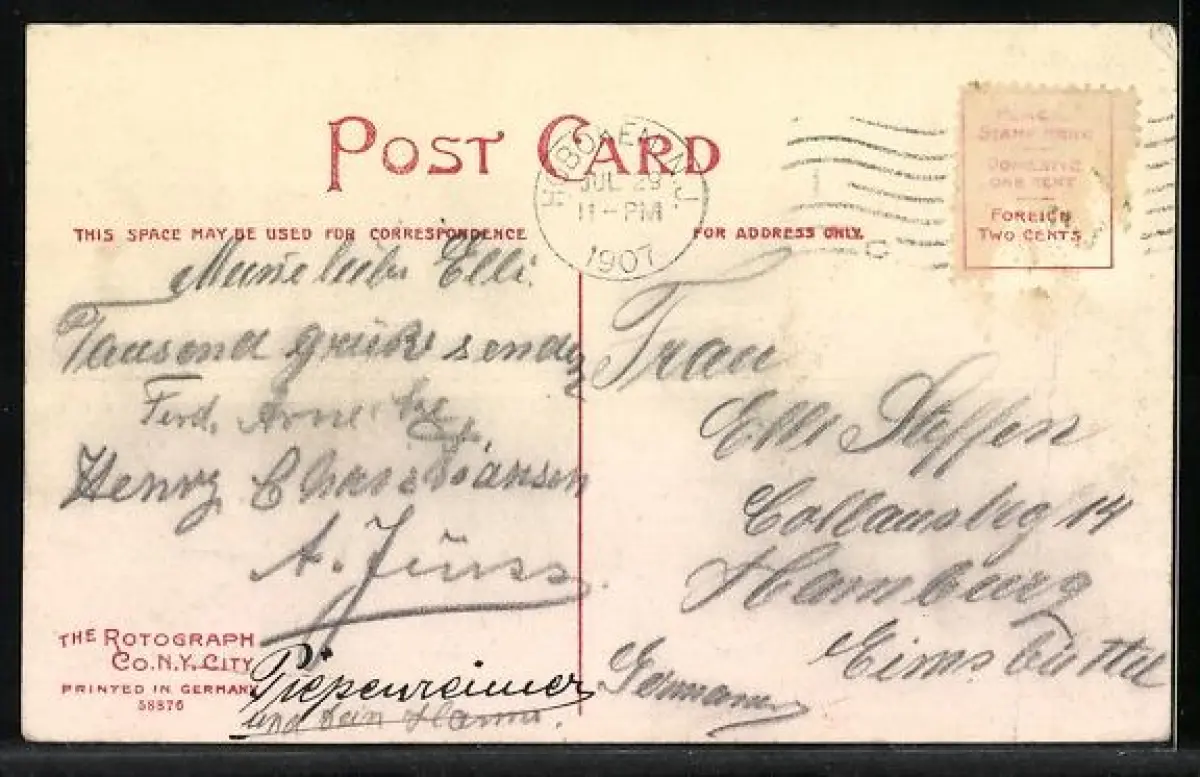 POST CARD
HOBOKEN, N.J.
JUL 29
11-PM
1907
PLACE
STAMP HERE
DOMESTIC
ONE CENT
FOREIGN
TWO CENTS
THIS SPACE MAY BE USED FOR CORRESPONDENCE
FOR ADDRESS ONLY.
Meine liebe Elli.
Tausend grüße
Ferd.
Henry
A. Jürss
Piepenreimer
und dein Hanns.
Frau
Elli Steffen
14
Hamburg
Eimsbüttel
Germany
THE ROTOGRAPH
CO. N.Y. CITY
PRINTED IN GERMANY
58876